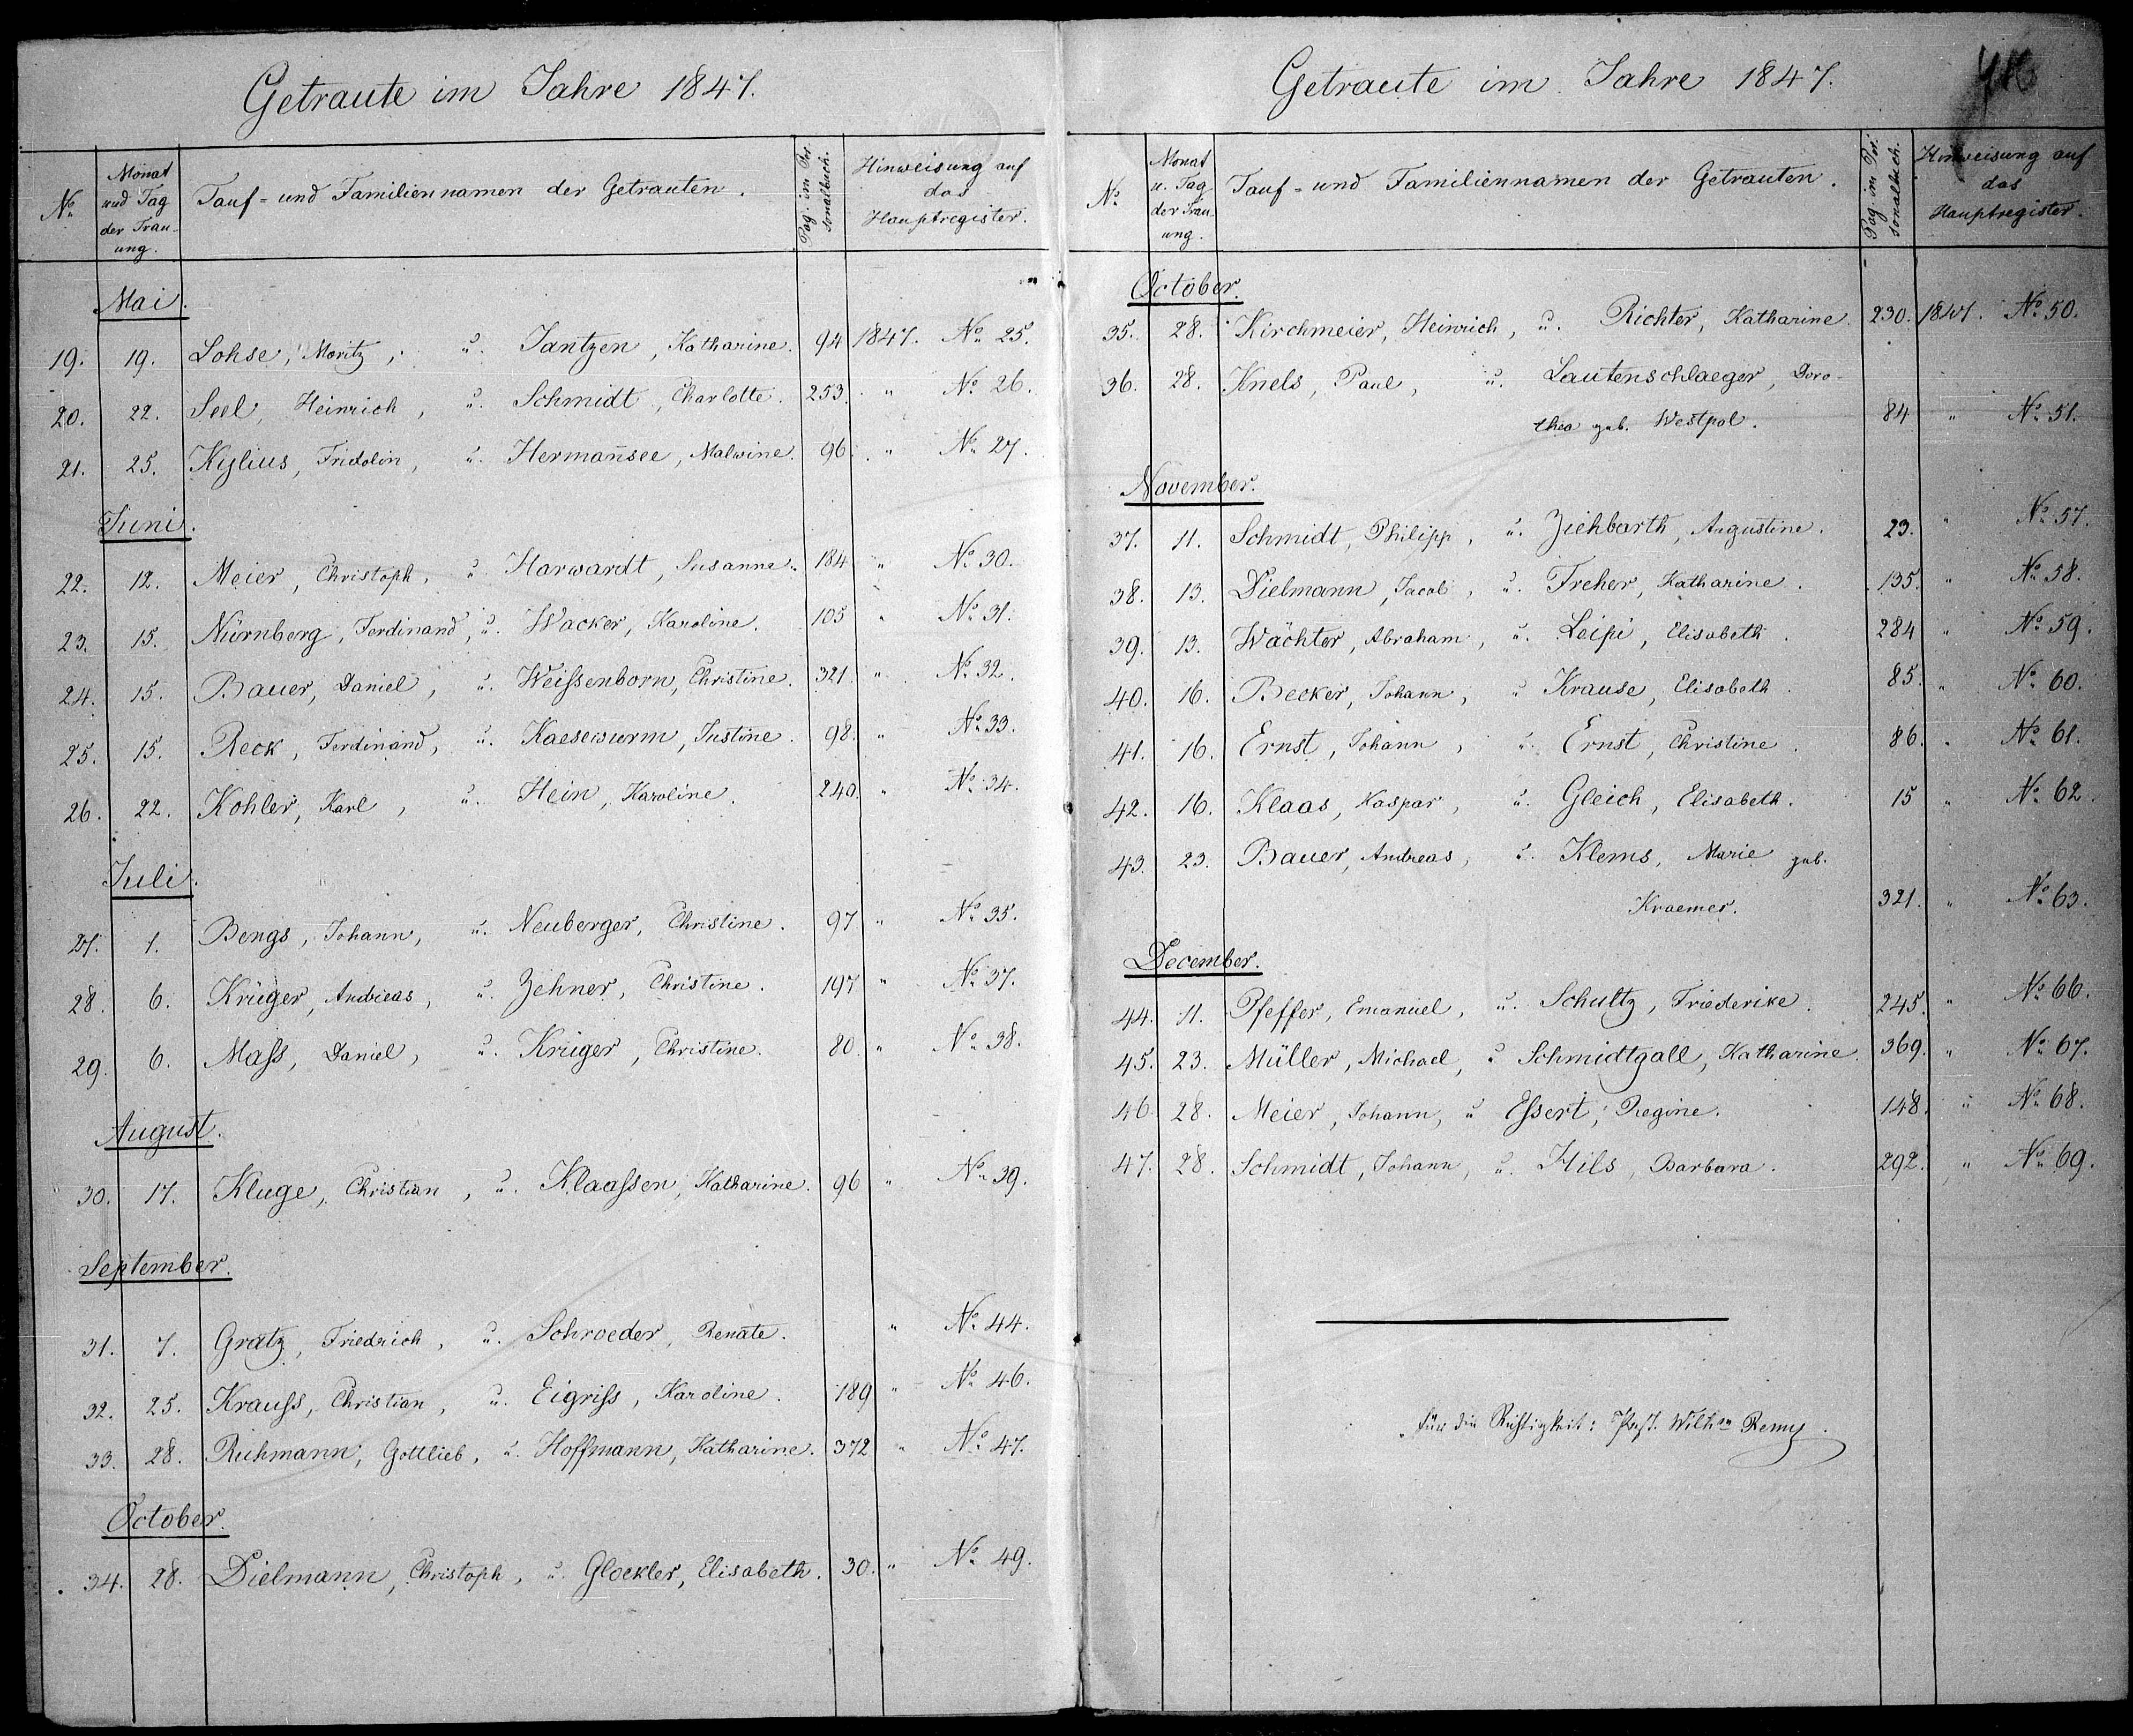 Getraute im Jahre 1847.
No. Monat und Tag der Trauung. Tauf- und Familiennamen der Getrauten. Pag. im Personalbuch. Hinweisung auf das Hauptregister.
Mai.
19. 19. Lohse, Moritz, u. Jantzen, Katharine. 94 1847. No. 25.
20. 22. Seel, Heinrich, u. Schmidt, Charlotte. 253. " No. 26.
21. 25. Kylius, Fridolin, u. Herman̄see, Malwine. 96. " No. 27.
Juni.
22. 12. Meier, Christoph, u. Harwardt, Susanne. 184 " No. 30.
23. 15. Nürnberg, Ferdinand, u. Wacker, Karoline. 105 " No. 31.
24. 15. Bauer, Daniel, u. Weissenborn, Christine. 321. " No. 32.
25. 15. Reck, Ferdinand, u. Kaesewurm, Justine. 98. " No. 33.
26. 22. Kohler, Karl, u. Hein, Karoline. 240. " No. 34.
Juli.
27. 1. Bengs, Johann, u. Neuberger, Christine. 97 " No. 35.
28. 6. Krüger, Andreas, u. Zehner, Christine. 197 " No. 37.
29. 6. Mass, Daniel, u. Krüger, Christine. 80. " No. 38.
August.
30. 17. Kluge, Christian, u. Klaassen, Katharine. 96 " No. 39.
September.
31. 7. Gratz, Friedrich, u. Schroeder, Renate. " No. 44.
32. 25. Krauss, Christian, u. Eigriss, Karoline. 189 " No. 46.
33. 28. Ruhmann, Gottlieb, u. Hoffmann, Katharine. 372 " No. 47.
October.
34. 28. Dielmann, Christoph, u. Glockler, Elisabeth. 30. " No. 49.
Getraute im Jahre 1847.
No. Monat u. Tag der Trauung. Tauf- und Familiennamen der Getrauten. Pag. im Personalbuch. Hinweisung auf das Hauptregister.
October.
35. 28. Kirchmeier, Heinrich, u. Richter, Katharine. 230. 1847. No. 50.
36. 28. Knels, Paul, u. Lautenschlaeger, Doro-
thea geb. Westpal. 84 " No. 51.
November.
37. 11. Schmidt, Philipp, u. Ziehbarth, Augustine. 23. " No. 57.
38. 13. Dielmann, Jacob, u. Freher, Katharine. 135. " No. 58.
39. 13. Wächter, Abraham, u. Leipi, Elisabeth. 284 " No. 59.
40. 16. Becker, Johann, u. Krause, Elisabeth. 85. " No. 60.
41. 16. Ernst, Johann, u. Ernst, Christine. 86. " No. 61.
42. 16. Klaas, Kaspar, u. Gleich, Elisabeth. 15 " No. 62.
43. 23. Bauer, Andreas, u. Klems, Marie geb.
Kraemer. 321. " No. 63.
December.
44. 11. Pfeffer, Emanuel, u. Schultz, Friederike. 245. " No. 66.
45. 23. Müller, Michael, u. Schmidtgall, Katharine. 369. " No. 67.
46. 28. Meier, Johann, u. Essert, Regine. 148. " No. 68.
47. 28. Schmidt, Johann, u. Hils, Barbara. 292. " No. 69.
Für die Richtigkeit: Past. Wilhm Remy.